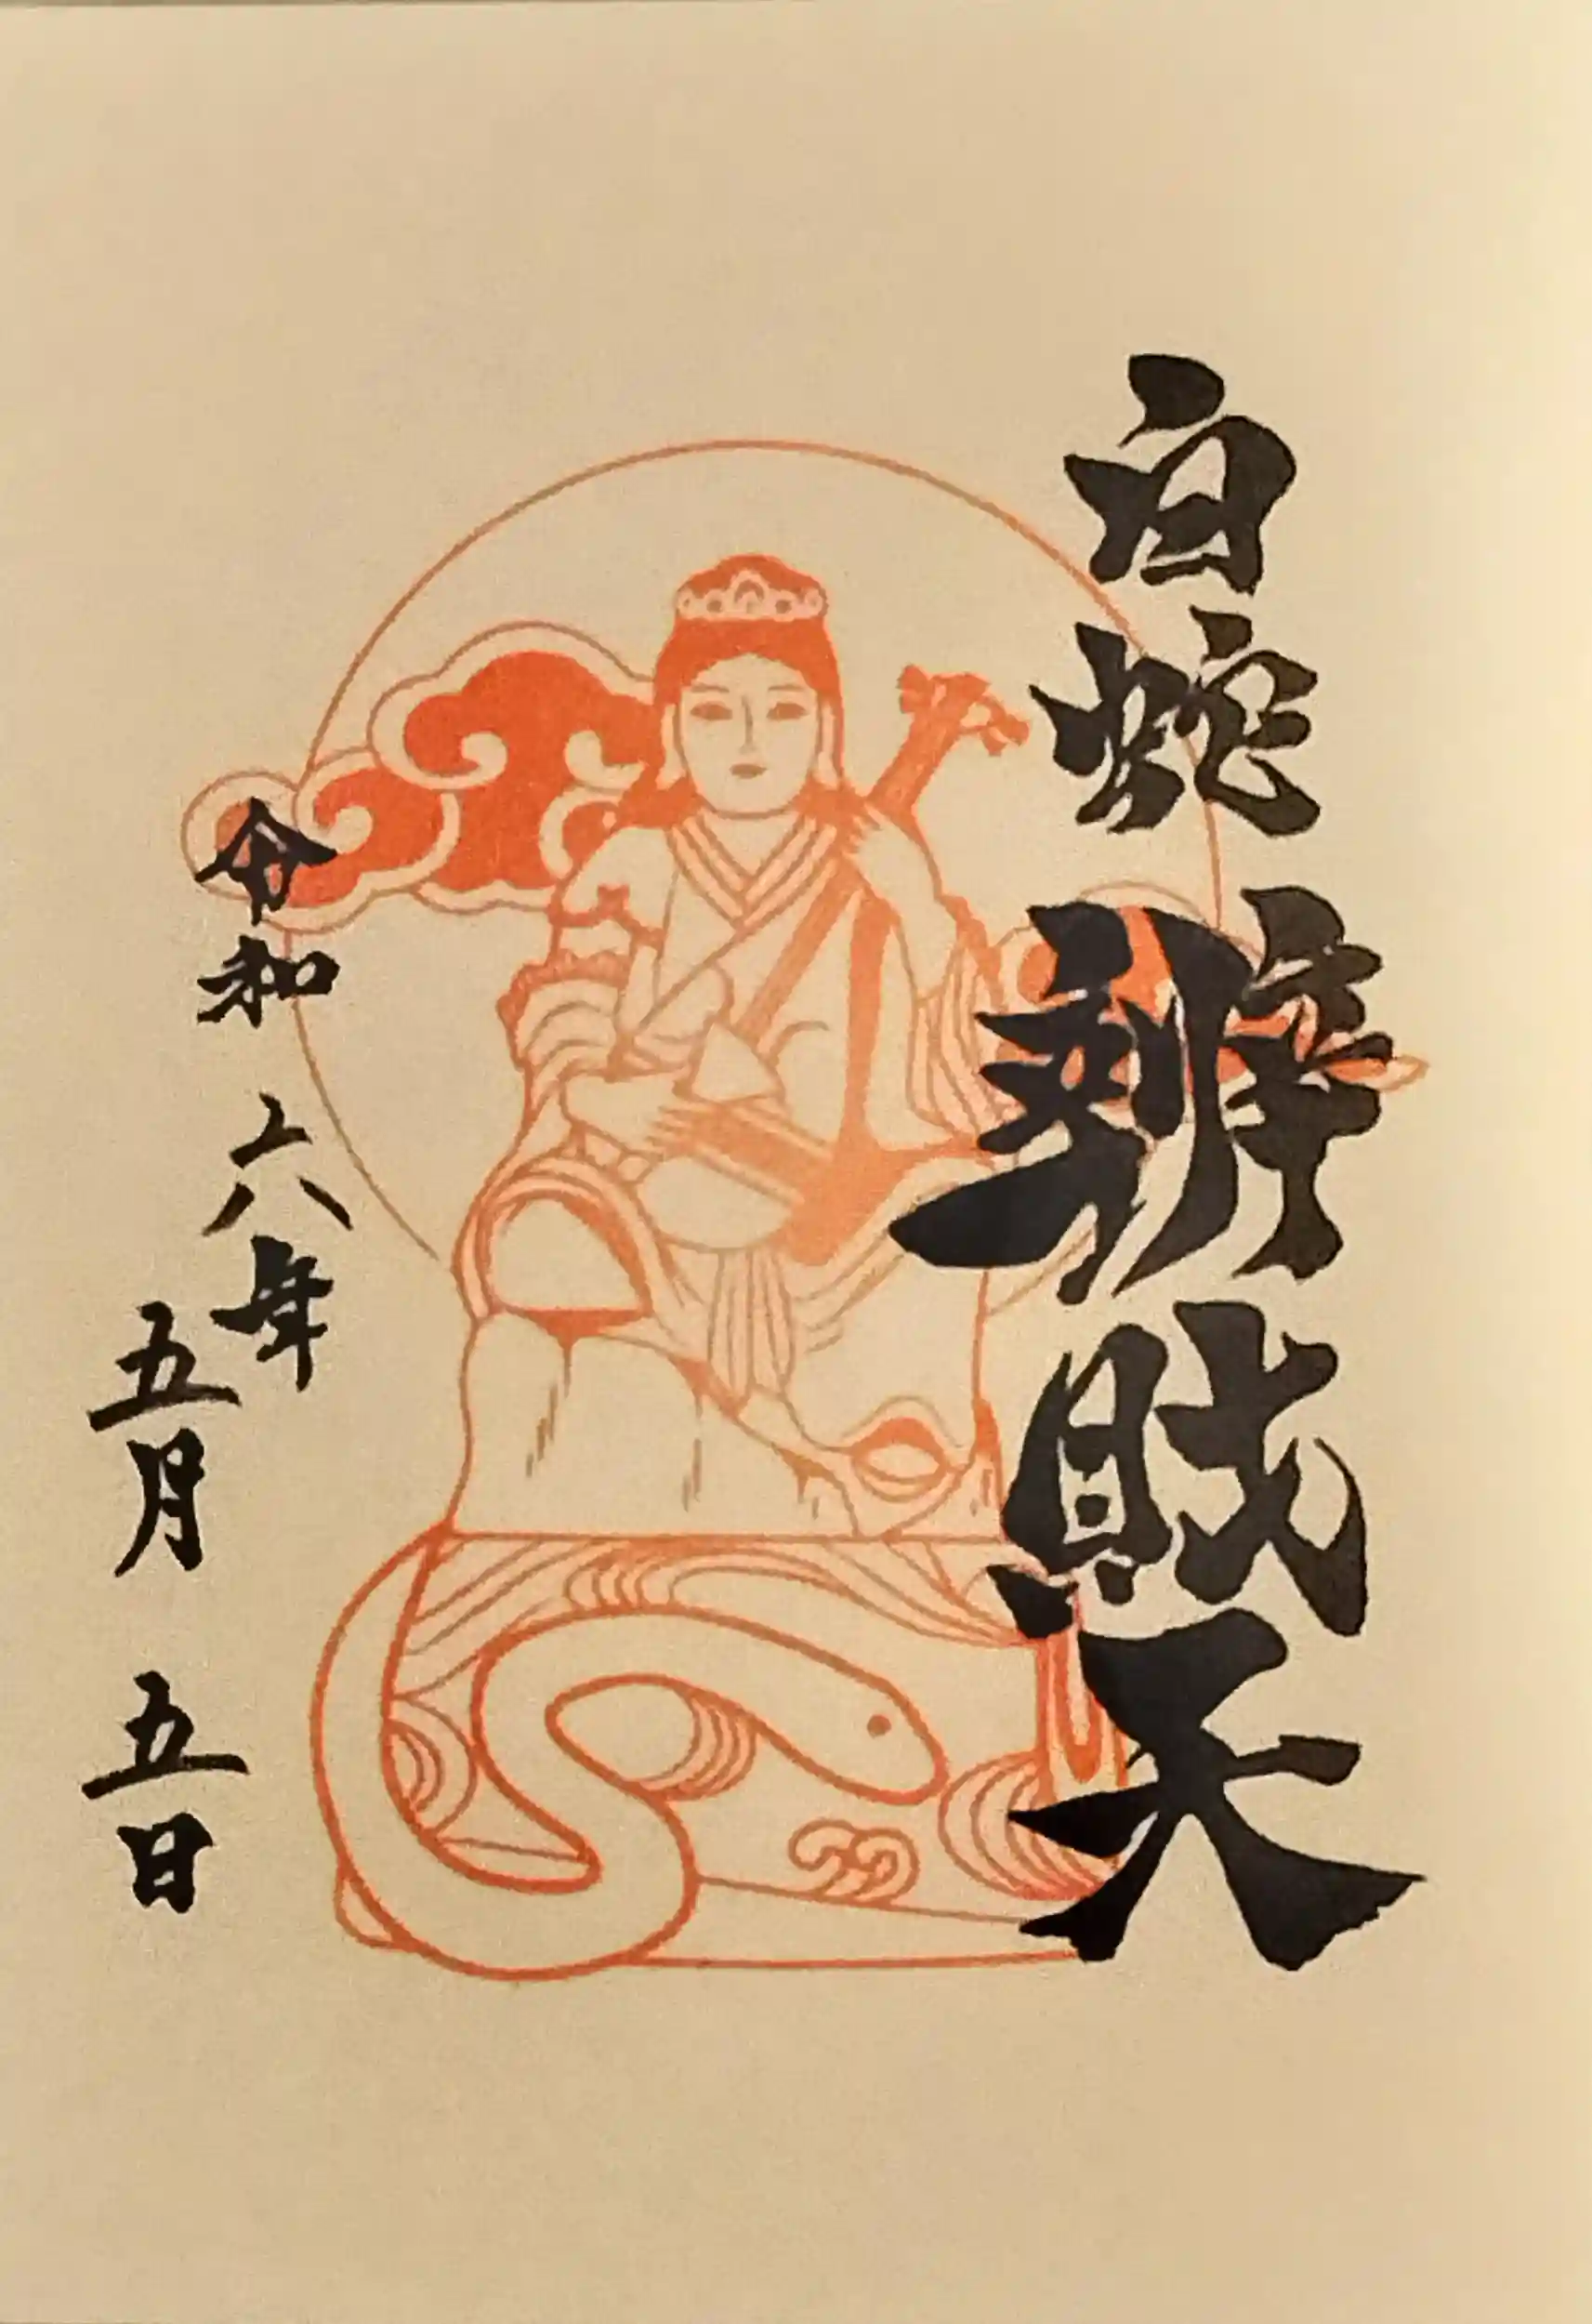 白蛇辨財天
令和六年
五月五日